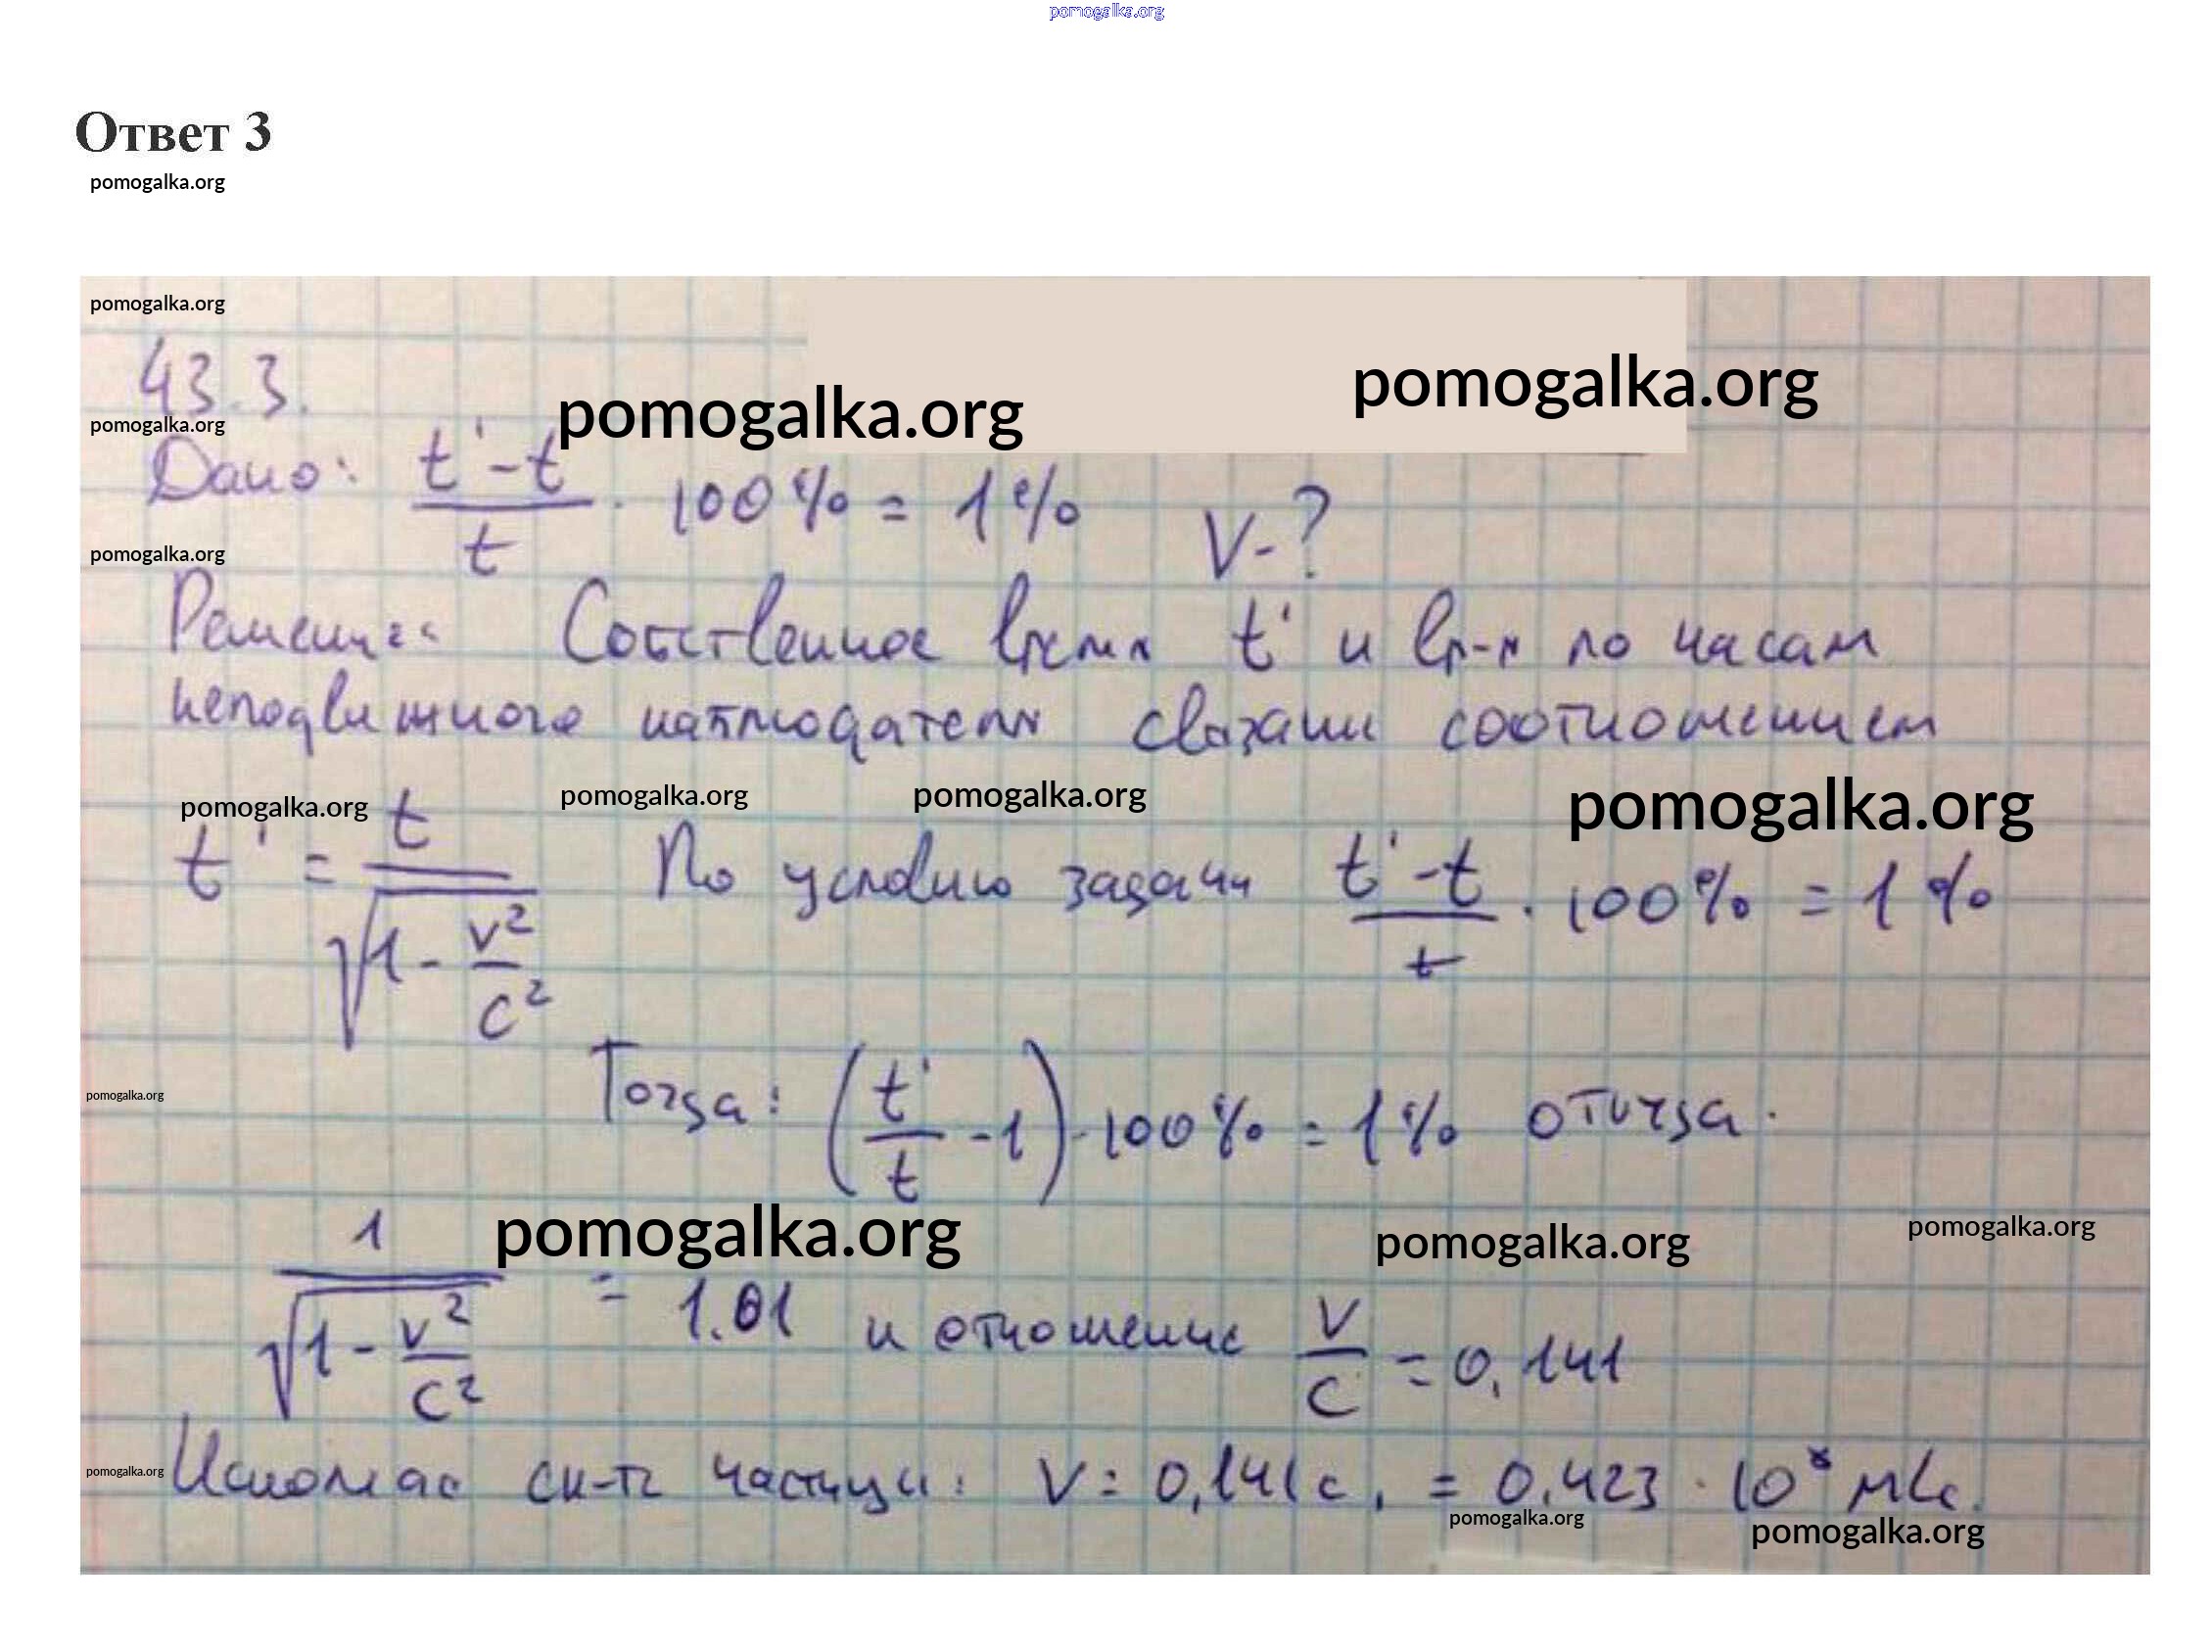 pomogalka.org
Ответ 3
pomogalka.org
pomogalka.org
43.3.
pomogalka.org pomogalka.org
pomogalka.org
Дано: (t' - t)/t · 100% = 1% V - ?
pomogalka.org
Решение: Собственное время t' и вр-я по часам
неподвижного наблюдателя связаны соотношением
pomogalka.org pomogalka.org pomogalka.org pomogalka.org
t' = t/√(1 - v²/c²) По условию задачи (t' - t)/t · 100% = 1%
pomogalka.org
Тогда: (t'/t - 1) · 100% = 1% откуда.
pomogalka.org pomogalka.org pomogalka.org
1/√(1 - v²/c²) = 1.01 и отношение V/C = 0,141
pomogalka.org
Искомая ск-ть частицы: V = 0,141c, = 0,423 · 10⁸ м/с.
pomogalka.org pomogalka.org